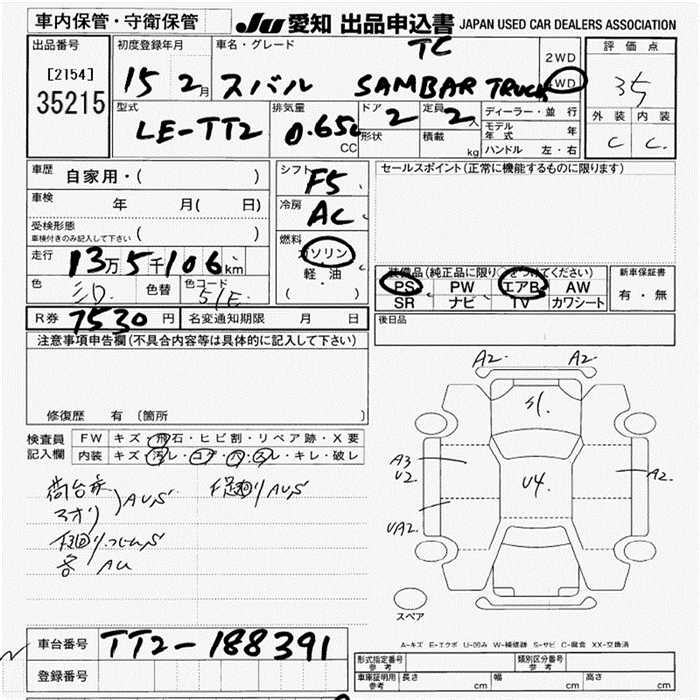 車内保管・守衛保管
JU 愛知 出品申込書 JAPAN USED CAR DEALERS ASSOCIATION
出品番号
[2154]
35215
初度登録年月
15 2月
車名・グレード
TC
スバル SAMBAR TRUCK
2WD
4WD
評価点
35
外装 内装
C C
型式
LE-TT2
排気量
0.65L
CC
ドア
2
形状
定員
2人
積載
kg
ディーラー・並行
モデル年式 年
ハンドル 左・右
車歴 自家用・( )
車検 年 月( 日)
受検形態
車検付きのみ記入して下さい ( )
走行 13万5千106km
色 色替 色コード
51E
R券 7530円 名変通知期限 月 日
シフト
F5
冷房
AC
燃料
ガソリン
軽・油
( )
セールスポイント(正常に機能するものに限ります)
装備品(純正品に限り○をつけてください)
PS PW エアB AW
SR ナビ TV カワシート
新車保証書
有・無
後日品
注意事項申告欄(不具合内容等は具体的に記入して下さい)
修復歴 有 〔箇所 〕
検査員
記入欄
FW キズ・飛石・ヒビ割・リペア跡・X要
内装 キズ・汚レ・コゲ・穴・スレ・キレ・破レ
荷台床
アオリ
AUS
下廻り AUS
AU
A2 A2
S1
A3
U2
U4
A2
UA2
スペア
A-キズ E-エクボ U-凹み W-補修跡 S-サビ C-腐食 XX-交換済
車台番号 TT2-188391
登録番号
形式指定番号
参考
類別区分番号
参考
車庫証明用
参考
長さ cm 幅 cm 高さ cm